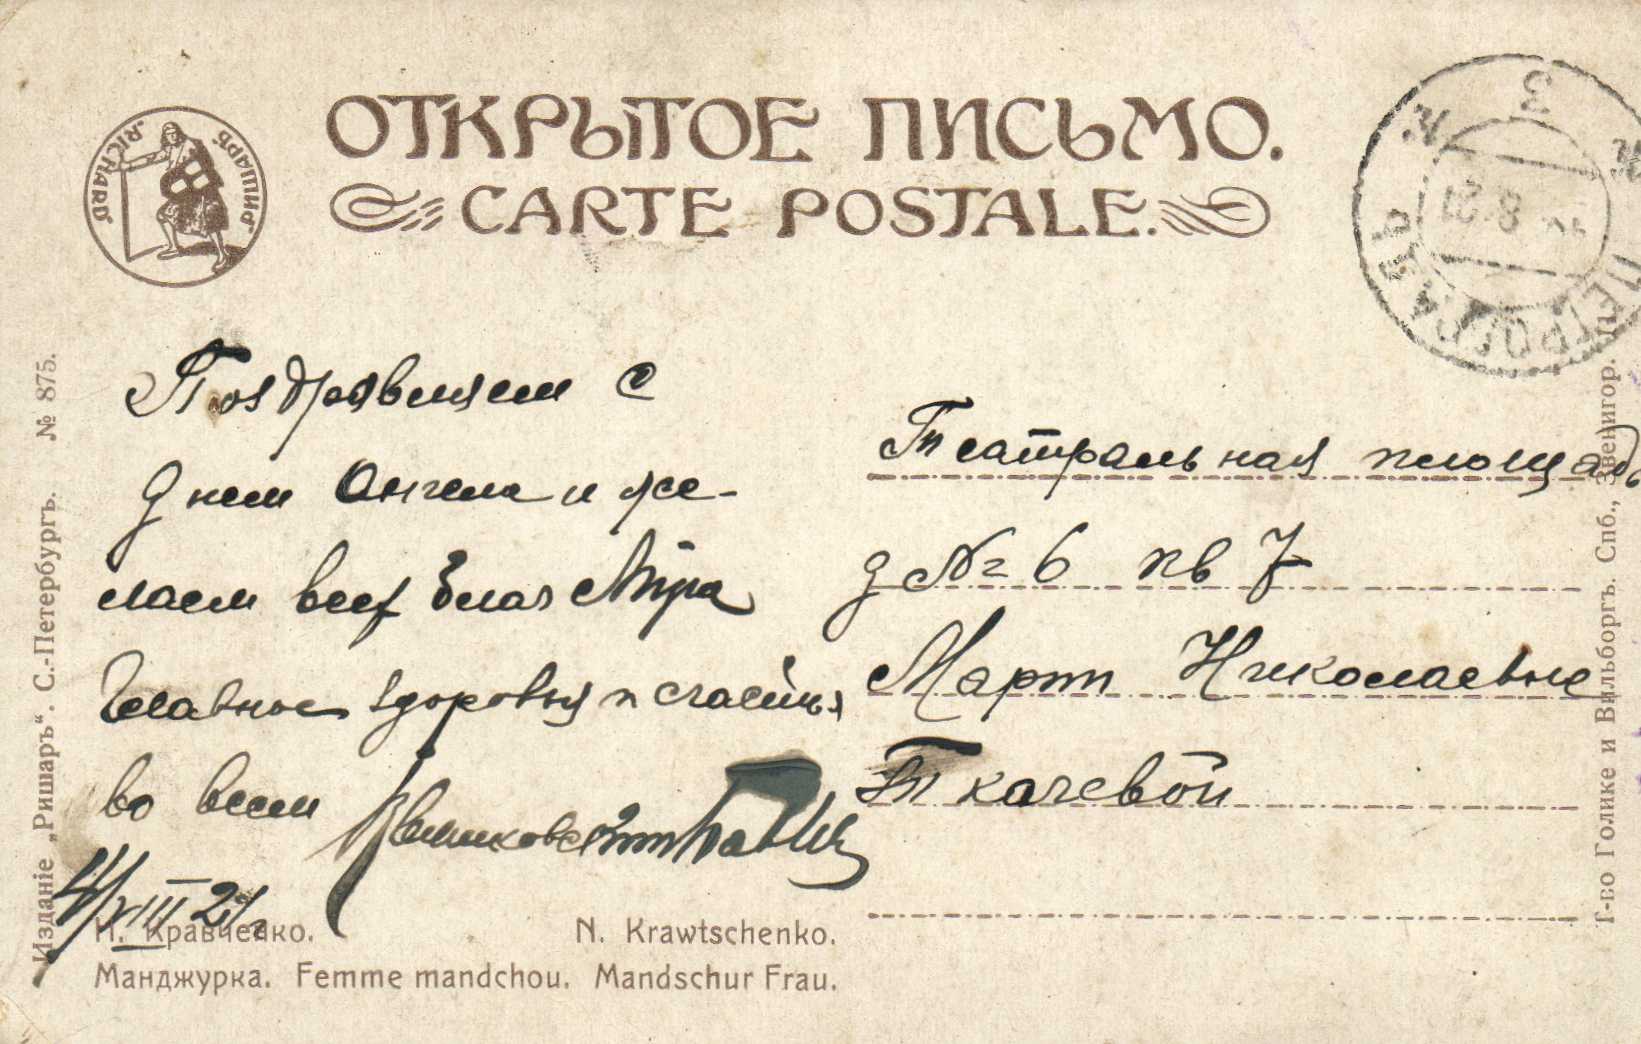 ОТКРЫТОЕ ПИСЬМО.
CARTE POSTALE.
РИШАРЪ. RICHARD
ПЕТРОГРАДЪ
8 21
3
Поздравляем с
днем Ангела и же-
лаем всех благ Мира
Главное здоровья и счастья
во всем
4/VIII 21 г
Театральная площадь
д № 6 кв 7
Марии Николаевне
Ткачевой
Н. Кравченко. N. Krawtschenko.
Манджурка. Femme mandchou. Mandschur Frau.
Изданіе „Ришаръ“. С.-Петербургъ. № 875.
Т-во Голике и Вильборгъ. Спб., Звенигор. 11.